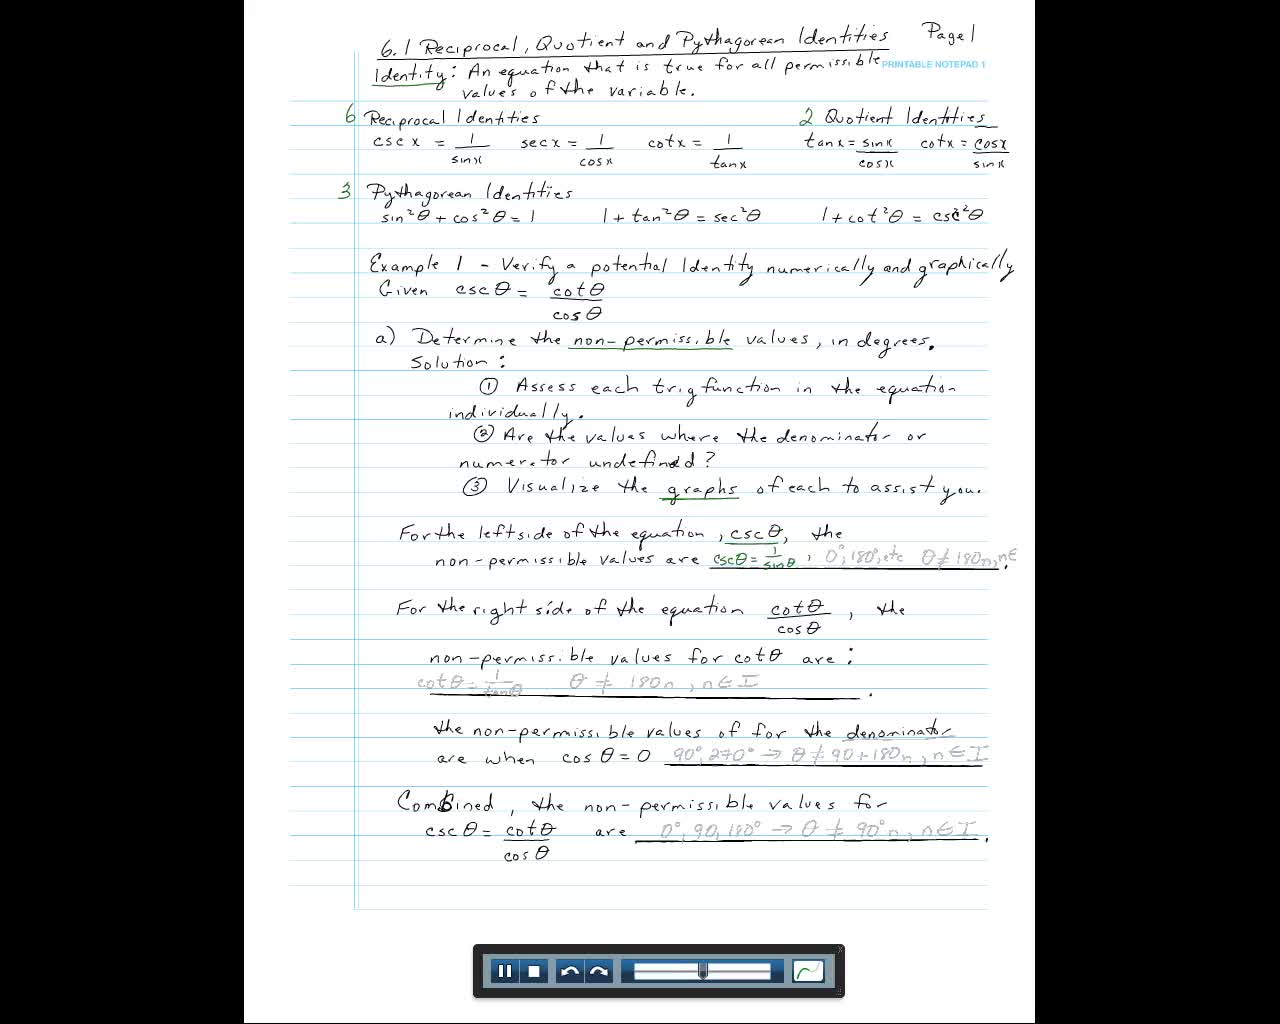 6.1 Reciprocal, Quotient and Pythagorean Identities Page 1
PRINTABLE NOTEPAD 1
Identity: An equation that is true for all permissible
values of the variable.
6 Reciprocal Identities 2 Quotient Identities
csc x = 1/sin x sec x = 1/cos x cot x = 1/tan x tan x = sin x/cos x cot x = cos x/sin x
3 Pythagorean Identities
sin²θ + cos²θ = 1 1 + tan²θ = sec²θ 1 + cot²θ = csc²θ
Example 1 - Verify a potential Identity numerically and graphically
Given csc θ = cot θ/cos θ
a) Determine the non-permissible values, in degrees.
Solution:
① Assess each trig function in the equation
individually.
② Are the values where the denominator or
numerator undefined?
③ Visualize the graphs of each to assist you.
For the left side of the equation, csc θ, the
non-permissible values are csc θ = 1/sin θ, 0°, 180°, etc θ ≠ 180n, n ∈ .
For the right side of the equation cot θ/cos θ, the
non-permissible values for cot θ are:
cot θ = 1/tan θ θ ≠ 180n, n ∈ I .
the non-permissible values of for the denominator
are when cos θ = 0 90°, 270° → θ ≠ 90 + 180n, n ∈ I
Combined, the non-permissible values for
csc θ = cot θ/cos θ are 0°, 90, 180° → θ ≠ 90°n, n ∈ I .